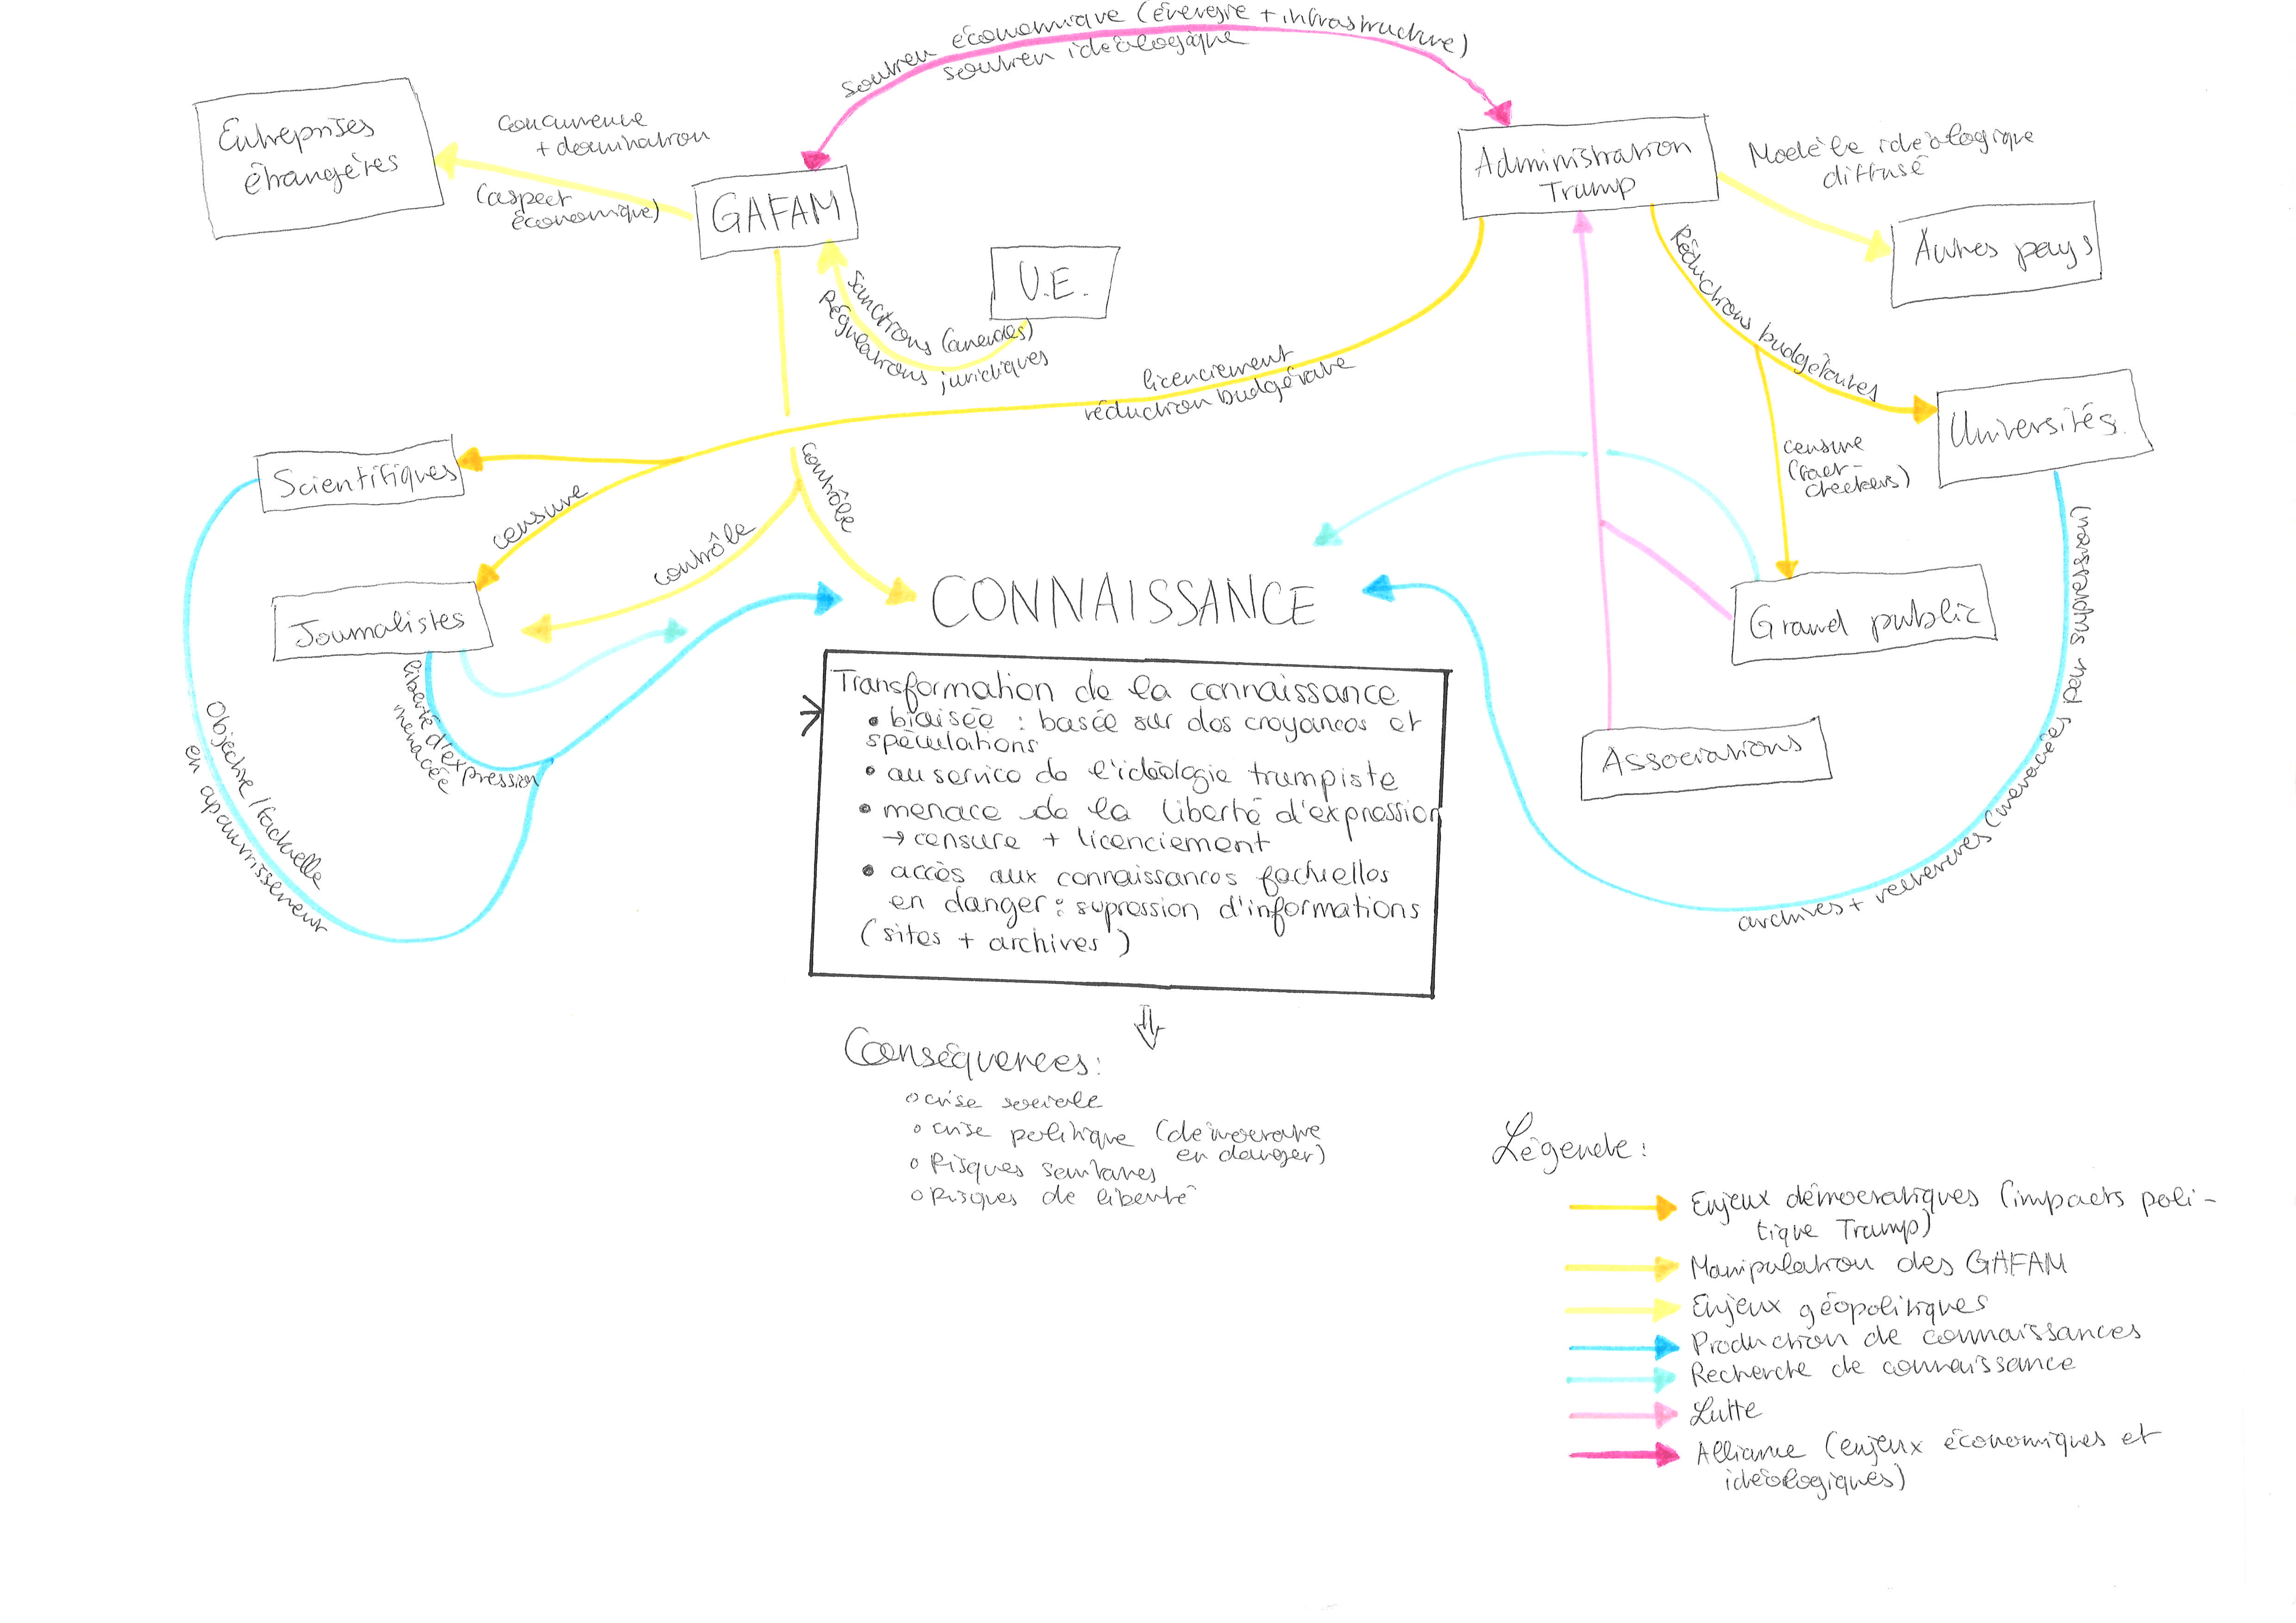 soutien économique (énergie + infrastructure)
soutien idéologique
Entreprises
étrangères
concurrence
+ domination
(aspect
économique)
GAFAM
Administration
Trump
Modèle idéologique
diffusé
Autres pays
U.E.
Sanctions (amendes)
Régulations juridiques
Réductions budgétaires
licenciement
réduction budgétaire
Universités
censure
(fact-
checkers)
Scientifiques
censure
contrôle
contrôle
Journalistes
CONNAISSANCE
Grand public
Associations
liberté d'expression
menacée
Objective / factuelle
en apauvrissement
archives + recherches (menacées par suppression)
Transformation de la connaissance
• biaisée : basée sur des croyances et
spéculations
• au service de l'idéologie trumpiste
• menace de la liberté d'expression
→ censure + licenciement
• accès aux connaissances factuelles
en danger : supression d'informations
(sites + archives)
Conséquences :
o crise sociale
o crise politique (démocratie
en danger)
o Risques sanitaires
o Risques de liberté
Légende :
Enjeux démocratiques (impacts poli-
tique Trump)
Manipulation des GAFAM
Enjeux géopolitiques
Production de connaissances
Recherche de connaissance
Lutte
Alliance (enjeux économiques et
idéologiques)